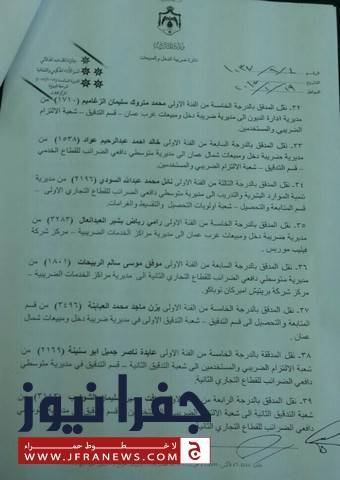 دائرة ضريبة الدخل والمبيعات
٣٢. نقل المدقق بالدرجة الخامسة من الفئة الاولى محمد متروك سليمان الزغاميم (١٧١٠) من
مديرية ادارة الديون الى مديرية ضريبة دخل ومبيعات غرب عمان – قسم التدقيق – شعبة الالتزام
الضريبي والمستخدمين.
٣٣. نقل المدقق بالدرجة السابعة من الفئة الاولى خالد احمد عبدالرحيم عواد (١٥٣٨) من مديرية
ضريبة دخل ومبيعات شمال عمان الى مديرية متوسطي دافعي الضرائب للقطاع الخدمي
– قسم التدقيق – شعبة الالتزام الضريبي والمستخدمين.
٣٤. نقل المدقق بالدرجة الثالثة من الفئة الاولى نائل محمد عبدالله السودي (٢١٩٦) من مديرية
تنمية الموارد البشرية والتدريب الى مديرية متوسطي دافعي الضرائب للقطاع التجاري الاولى –
قسم المتابعة والتحصيل – شعبة اولويات التحصيل والتقسيط والغرامات.
٣٥. نقل المدقق بالدرجة الخامسة من الفئة الاولى رامي رياض بشير العبدالعال (٣٢٨٣) من
مديرية ضريبة دخل ومبيعات غرب عمان الى مديرية مراكز الخدمات الضريبية – مركز شركة
فيليب موريس.
٣٦. نقل المدقق بالدرجة الخامسة من الفئة الاولى موفق موسى سالم الربيحات (١٨٠١) من
مديرية متوسطي دافعي الضرائب للقطاع التجاري الثانية الى مديرية مراكز الخدمات الضريبية –
مركز شركة بريتيش اميركان توباكو.
٣٧. نقل المدقق بالدرجة الخامسة من الفئة الاولى يزن ماجد محمد العبابنة (٣٤٩٦) من قسم
المتابعة والتحصيل الى قسم التدقيق – شعبة التدقيق الاولى في مديرية ضريبة دخل ومبيعات شمال
عمان.
٣٨. نقل المدققة بالدرجة الخامسة من الفئة الاولى عايدة ناصر جميل ابو سنينة (٢١٦٩) من
شعبة الالتزام الضريبي والمستخدمين الى شعبة التدقيق الثانية – قسم التدقيق في مديرية متوسطي
دافعي الضرائب للقطاع التجاري الثانية.
٣٩. نقل المدقق بالدرجة الرابعة من الفئة
شعبة التدقيق الثانية الى شعبة
للقطاع التجاري الثانية.
جفرا نيوز
الأخبار لا خطوط حمراء
WWW.JFRANEWS.COM